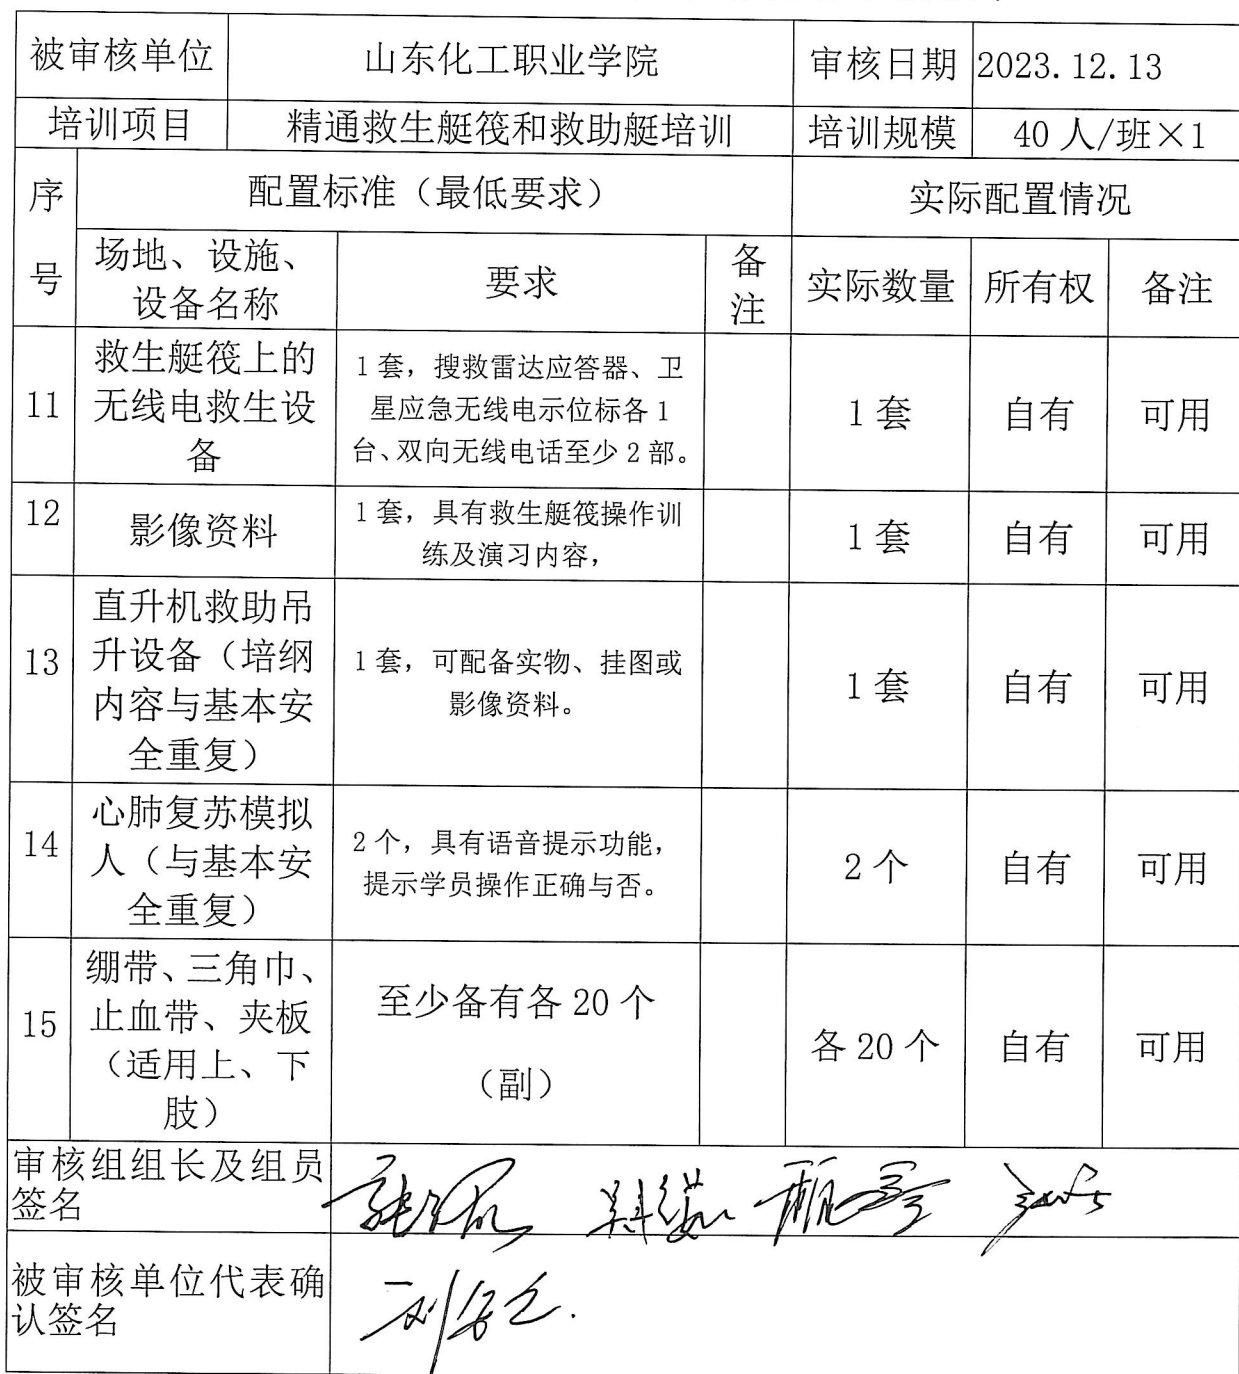 被审核单位 山东化工职业学院 审核日期 2023.12.13
培训项目 精通救生艇筏和救助艇培训 培训规模 40人/班×1
序号 配置标准（最低要求） 实际配置情况
场地、设施、
设备名称
要求
备
注
实际数量 所有权 备注
11
救生艇筏上的
无线电救生设
备
1套，搜救雷达应答器、卫
星应急无线电示位标各1
台、双向无线电话至少2部。
1套 自有 可用
12
影像资料
1套，具有救生艇筏操作训
练及演习内容，
1套 自有 可用
13
直升机救助吊
升设备（培纲
内容与基本安
全重复）
1套，可配备实物、挂图或
影像资料。
1套 自有 可用
14
心肺复苏模拟
人（与基本安
全重复）
2个，具有语音提示功能，
提示学员操作正确与否。
2个 自有 可用
15
绷带、三角巾、
止血带、夹板
（适用上、下
肢）
至少备有各20个
（副）
各20个 自有 可用
审核组组长及组员
签名
被审核单位代表确
认签名